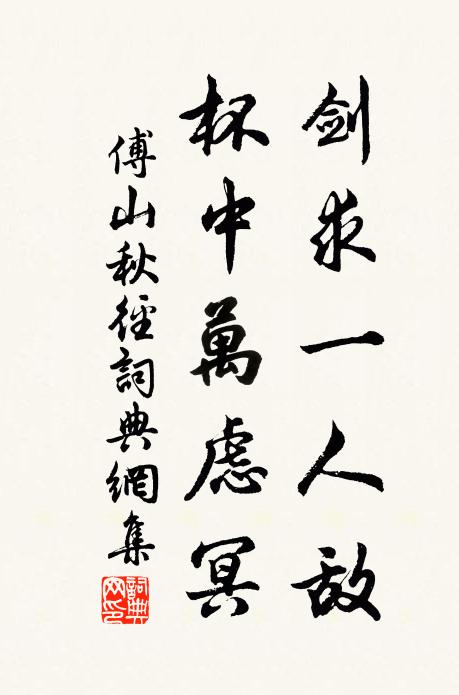 剑求一人敌
杯中萬慮冥
傅山秋徑詞典網集
詞典网印